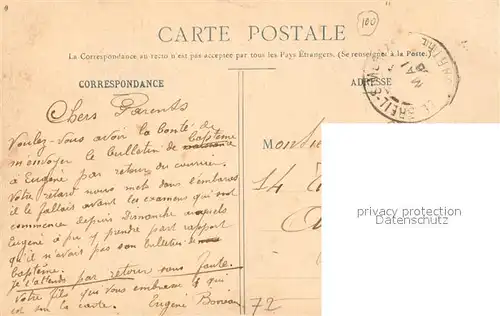 100
CARTE POSTALE
La Correspondance au recto n'est pas acceptée par tous les Pays Étrangers. (Se renseigner à la Poste.)
CORRESPONDANCE
ADRESSE
Chers Parents
Voulez-vous avoir la bonté de
m'envoyer le bulletin de bapteme
à Eugène par retour du courrier.
Votre retard nous mets dans l'embaras
il le fallait avant les examens qui ont
commencé depuis Dimanche auquels
Eugene à pu y prendre part rapport
qu'il n'avait pas son bulletin de
baptême.
je l'attends par retour sans faute.
Votre fils qui vous embrasse & qui
est sur la carte. Eugene
14
72
privacy protection
watermark